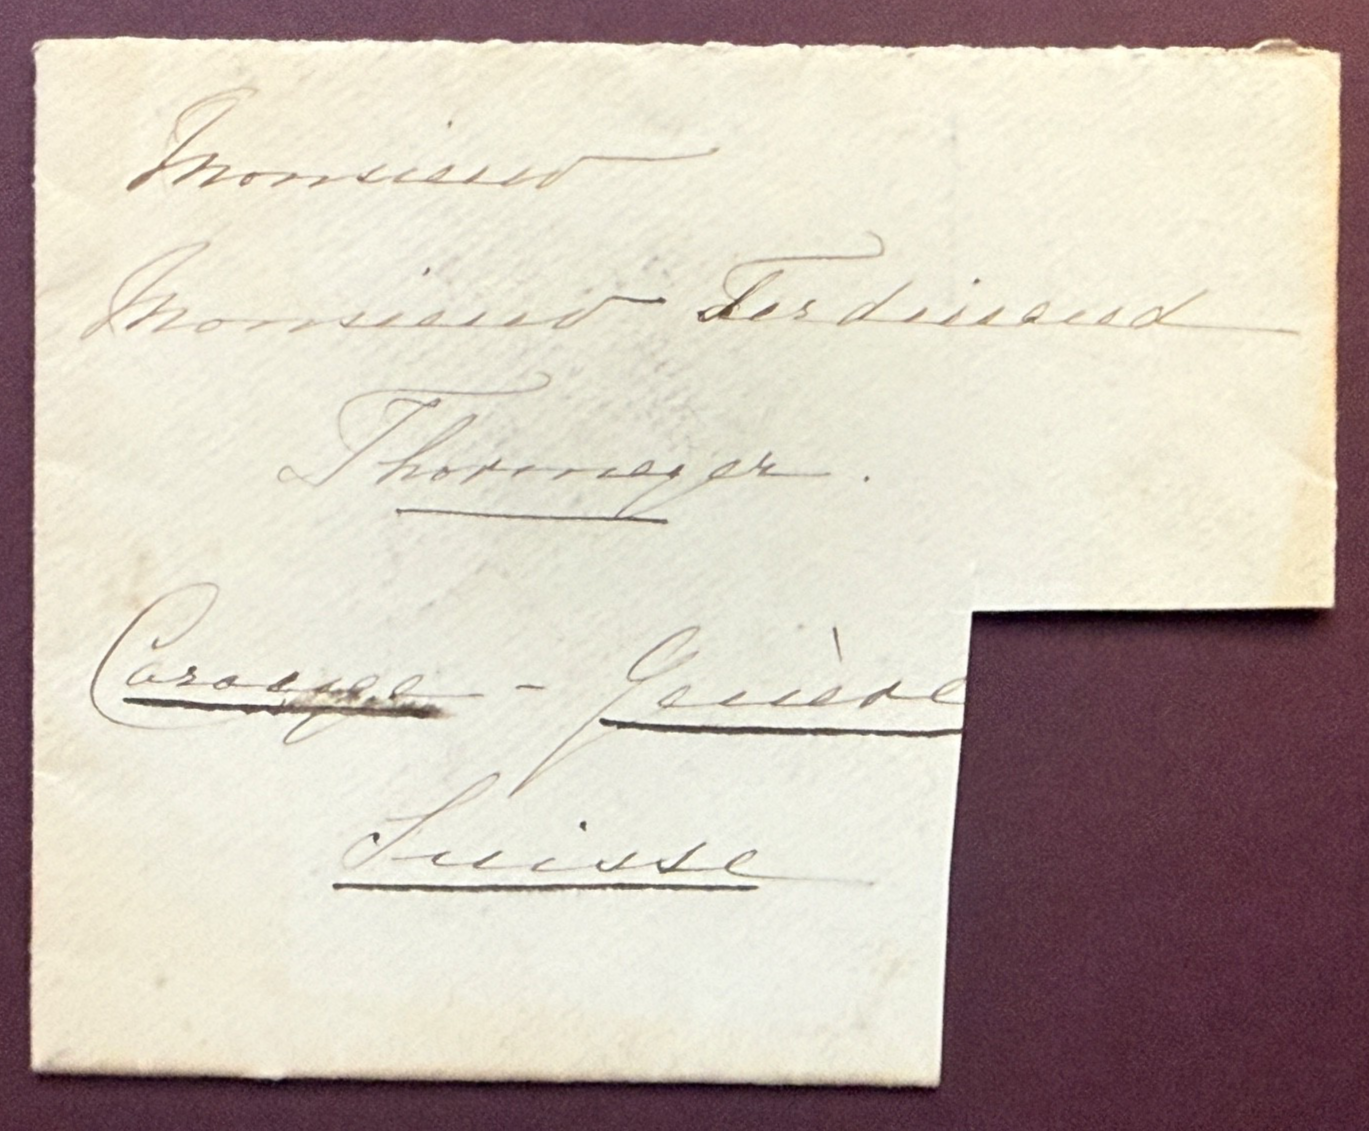 Monsieur
Monsieur Ferdinand
Thormeyer.
Carouge - Genève
Suisse